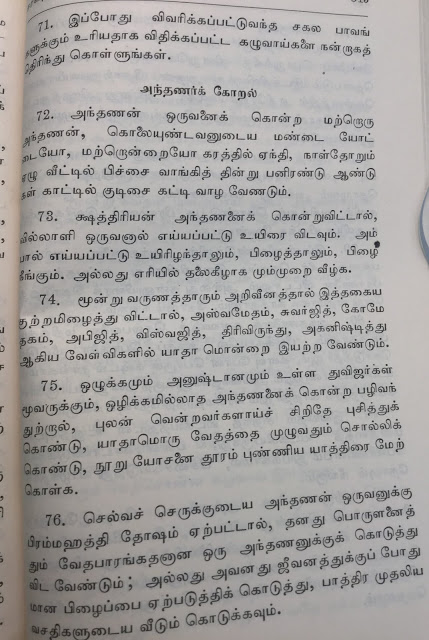 71. இப்போது விவரிக்கப்பட்டுவந்த சகல பாவங்
களுக்கும் உரியதாக விதிக்கப்பட்ட கழுவாய்களை நன்றாகத்
தெரிந்து கொள்ளுங்கள்.
அந்தணர்க் கோறல்
72. அந்தணன் ஒருவனைக் கொன்ற மற்றொரு
அந்தணன், கொலையுண்டவனுடைய மண்டை யோட்
டையோ, மற்றொன்றையோ கரத்தில் ஏந்தி, நாள்தோறும்
ஏழு வீட்டில் பிச்சை வாங்கித் தின்று பனிரண்டு ஆண்டு
கள் காட்டில் குடிசை கட்டி வாழ வேணடும்.
73. க்ஷத்திரியன் அந்தணனைக் கொன்றுவிட்டால்,
வில்லாளி ஒருவனால் எய்யப்பட்டு உயிரை விடவும். அம்
பால் எய்யப்பட்டு உயிரிழந்தாலும், பிழைத்தாலும், பிழை
நீங்கும். அல்லது எரியில் தலைகீழாக மும்முறை வீழ்க.
74. மூன்று வருணத்தாரும் அறிவீனத்தால் இத்தகைய
குற்றமிழைத்து விட்டால், அஸ்வமேதம், சுவர்ஜித், கோமே
தகம், அபிஜித், விஸ்வஜித், திரிவிருந்து, அகனிஷ்டித்து
ஆகிய வேள்விகளில் யாதா மொன்றை இயற்ற வேண்டும்.
75. ஒழுக்கமும் அனுஷ்டானமும் உள்ள துவிஜர்கள்
மூவருக்கும், ஒழிக்கமில்லாத அந்தணனைக் கொன்ற பழிவந்
துற்றால், புலன் வென்றவர்களாய்ச் சிறிதே புசித்துக்
கொண்டு, யாதாமொரு வேதத்தை முழுவதும் சொல்லிக்
கொண்டு, நூறு யோசனை தூரம் புண்ணிய யாத்திரை மேற்
கொள்க.
76. செல்வச் செருக்குடைய அந்தணன் ஒருவனுக்கு
பிரம்மஹத்தி தோஷம் ஏற்பட்டால், தனது பொருளனைத்
தும் வேதபாரங்கதனான ஒரு அந்தணனுக்குக் கொடுத்து
விட வேண்டும்; அல்லது அவனது ஜீவனத்துக்குப் போது
மான பிழைப்பை ஏற்படுத்திக் கொடுத்து, பாத்திர முதலிய
வசதிகளுடைய வீடும் கொடுக்கவும்.